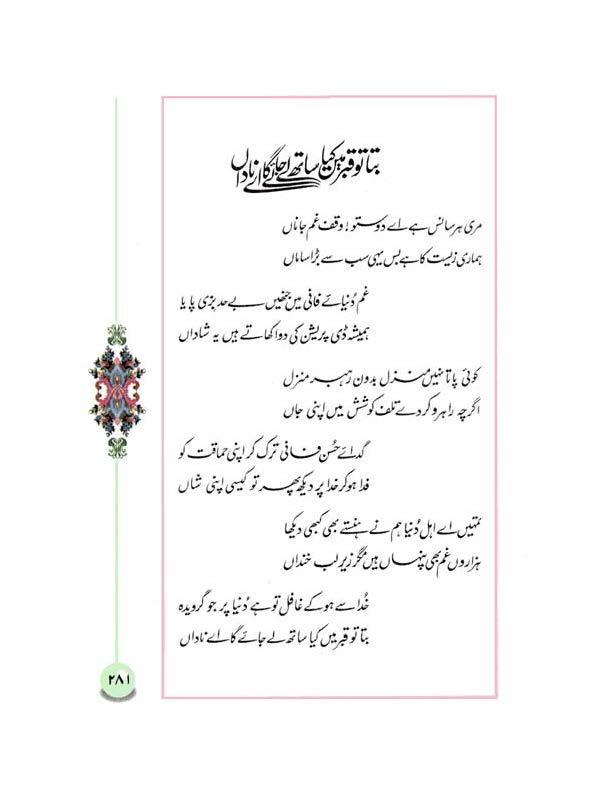 بتا تو قبر میں کیا ساتھ لے جائے گا اے ناداں
مری ہر سانس ہے اے دوستو! وقف غم جاناں
ہماری زیست کا ہے بس یہی سب سے بڑا ساماں
غم دُنیائے فانی میں جنھیں بے حد بزی پایا
ہمیشہ ڈی پریشن کی دوا کھاتے ہیں یہ شاداں
کوئی پاتا نہیں منزل بدون رہبر منزل
اگرچہ راہرو کر دے تلف کوشش میں اپنی جاں
گدائے حُسن فانی ترک کر اپنی حماقت کو
فدا ہو کر خدا پر دیکھ پھر تو کیسی اپنی شاں
تمہیں اے اہل دُنیا ہم نے ہنستے بھی کبھی دیکھا
ہزاروں غم بھی پنہاں ہیں مگر زیر لب خنداں
خُدا سے ہو کے غافل تو ہے دُنیا پر جو گرویدہ
بتا تو قبر میں کیا ساتھ لے جائے گا اے ناداں
۲۸۱